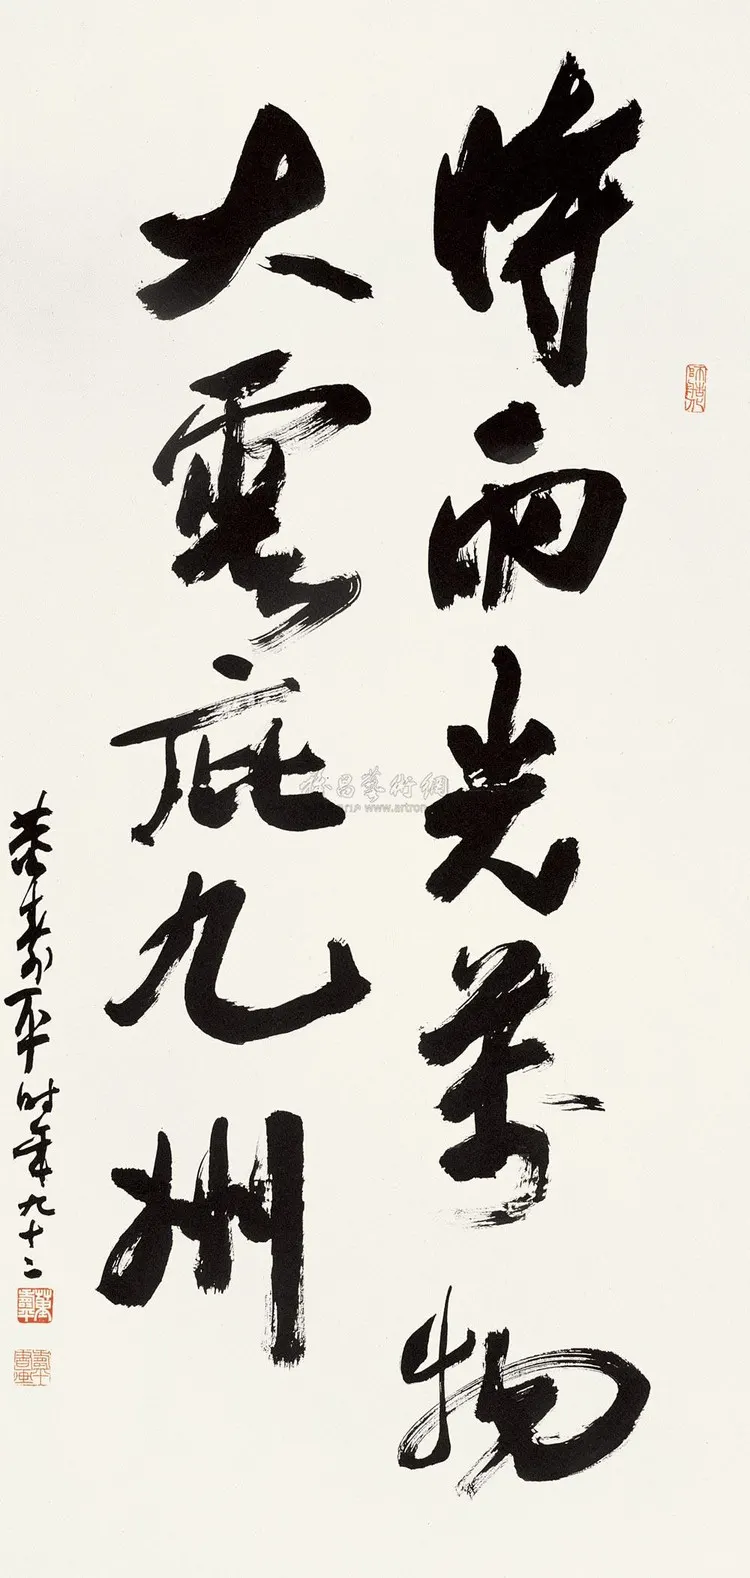 時雨光萬物
大雲庇九州
董壽平時年九十二
雅昌藝術網
www.artron